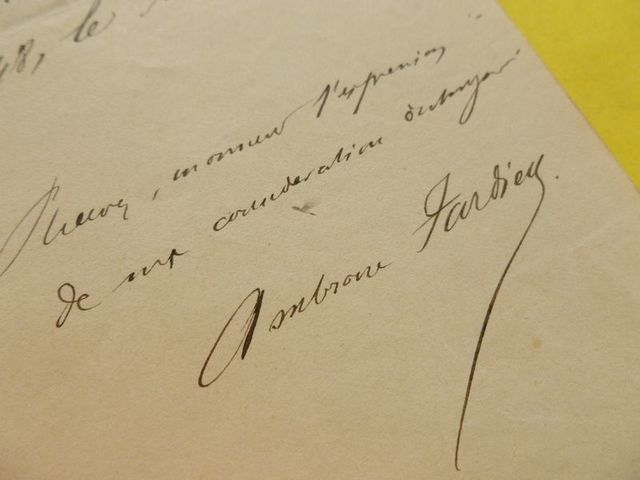 48, le
Recevez, monsieur l'expression
de ma considération distinguée
Ambroise Tardieu.